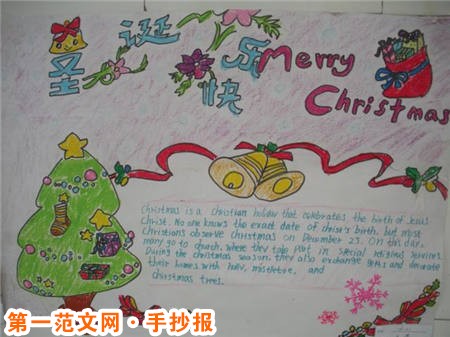 圣诞快乐
Merry
Christmas
Christmas is a christian holiday that celebrates the birth of Jesus
Christ. No one knows the exact date of christ's birth, but most
Christians observe Christmas on December 25. On this day,
many go to church, where they take part in special religious services.
During the christmas season, they also exchange gifts and decorate
their homes with holly, mistletoe, and
christmas trees.
第一范文网·手抄报